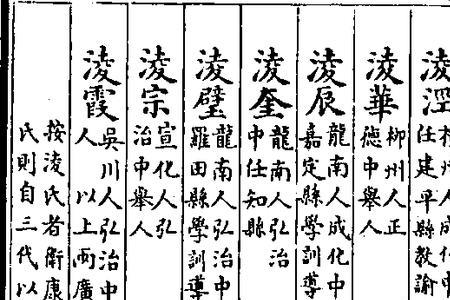 淩涇
州人成化中
任建平縣教諭
淩華
柳州人正
德中舉人
淩辰
龍南人成化中
嘉定縣學訓導
淩奎
龍南人弘治
中任知縣
淩璧
龍南人弘治中
羅田縣學訓導
淩宗
宣化人弘
治中舉人
淩霞
吳川人弘治中
人 以上兩廣
按淩氏者衛康
氏則自三代以